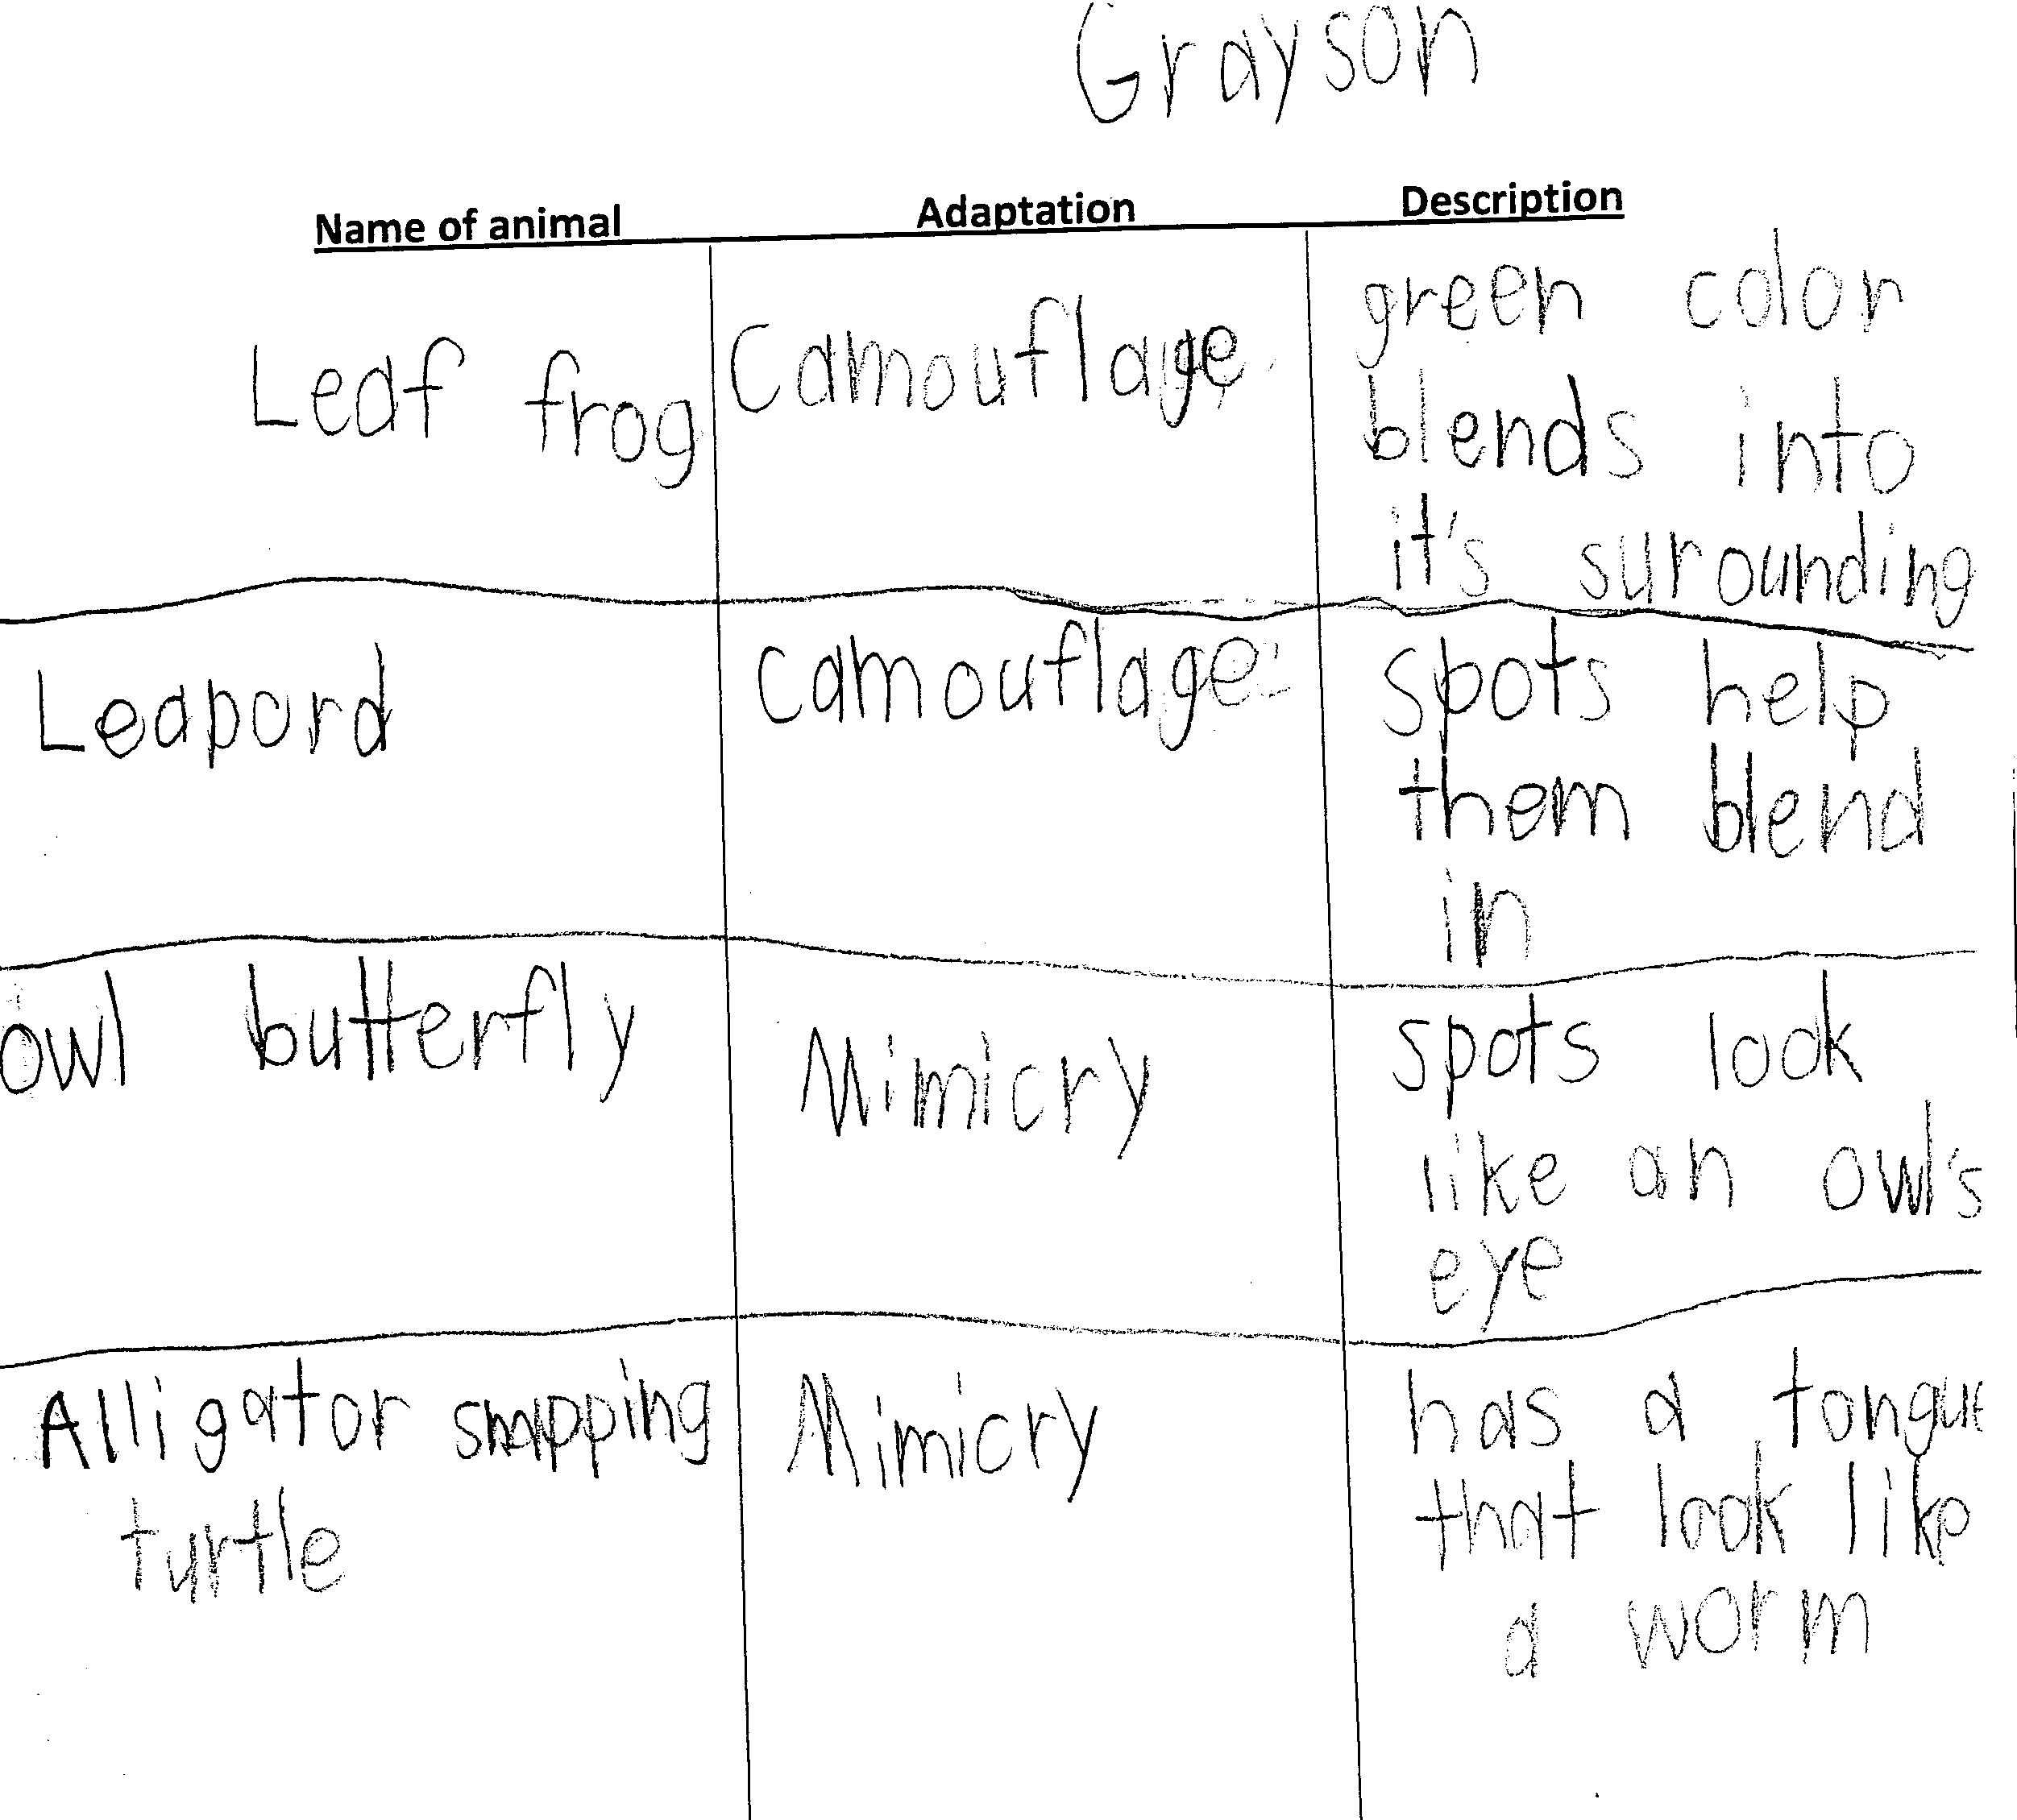 Grayson
Name of animal Adaptation Description
Leaf frog Camouflage green color
blends into
it's surounding
Leapord Camouflage spots help
them blend
in
owl butterfly Mimicry spots look
like an owl's
eye
Alligator snapping Mimicry has a tongue
turtle that look like
a worm